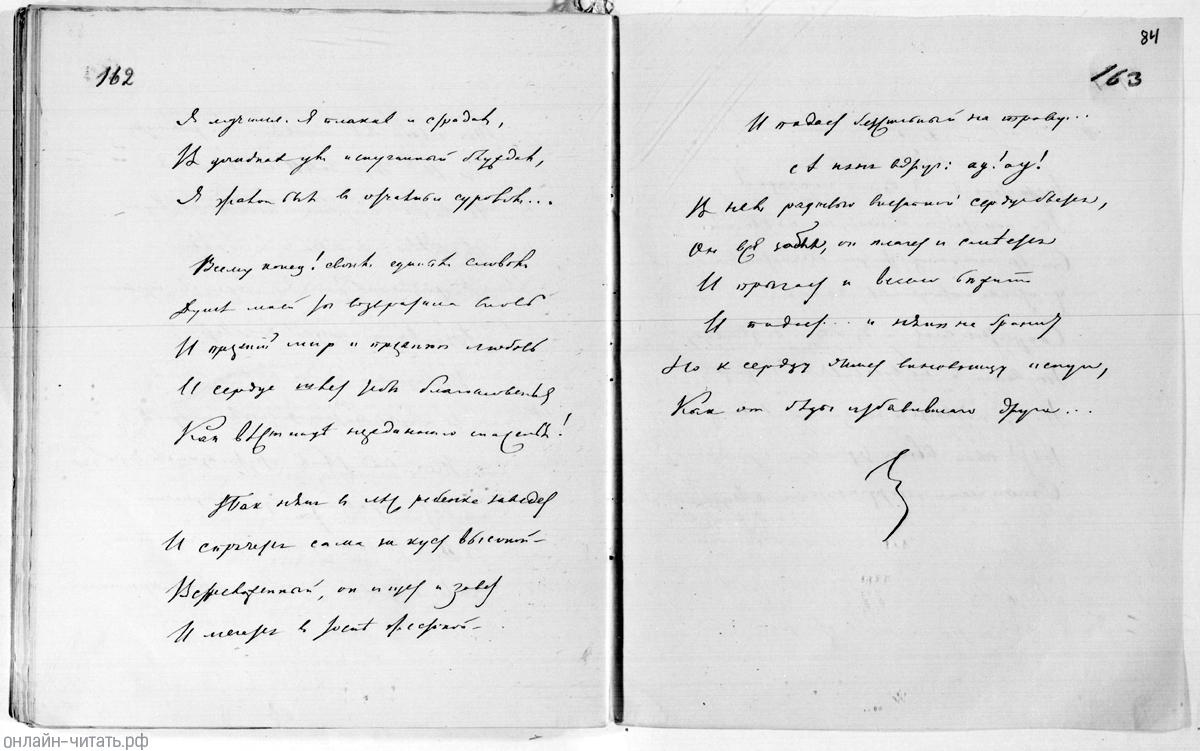 162
Я мучился. Я плакал и страдал,
В догадках ум испуганный блуждал,
Я жалок был в отчаяньи суровом...
Всему конец! своим единым словом
Душе моей ты возвратила вновь
И прежний мир и прежнюю любовь
И сердце шлет тебе благословенья
Как вестнице нежданного спасенья!
Так няня в лес ребенка заведет
И спрячется сама за куст высокой –
Встревоженный, он ищет и зовет
И мечется в тоске жестокой –
84
163
И падает бессильный на траву...
А няня вдруг: ау! ау!
В нем радостью внезапной сердце бьется,
Он всё забыл, он плачет и смеется
И прыгает и весело бежит
И падает... и няню не бранит
Но к сердцу жмет виновницу испуга,
Как от беды избавившего друга...
онлайн-читать.рф